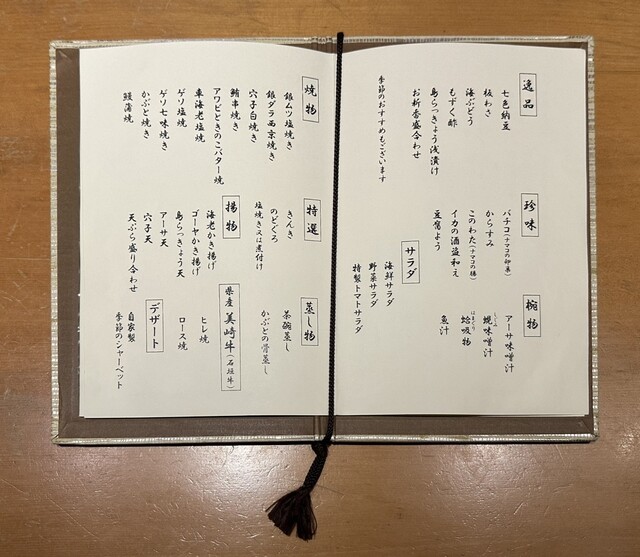 逸品
七色納豆
板わさ
海ぶどう
もずく酢
島らっきょう浅漬け
お新香盛合わせ
季節のおすすめもございます
珍味
バチコ(ナマコの卵巣)
からすみ
このわた(ナマコの腸)
イカの酒盗和え
豆腐よう
サラダ
海鮮サラダ
野菜サラダ
特製トマトサラダ
椀物
アーサ味噌汁
蜆味噌汁
しじみ
蛤吸物
はまぐり
魚汁
焼物
銀ムツ塩焼き
銀ダラ西京焼き
穴子白焼き
鮪串焼き
アワビときのこバター焼
車海老塩焼
ゲソ塩焼
ゲソ七味焼き
かぶと焼き
鰻蒲焼
特選
きんき
のどぐろ
塩焼き又は煮付け
揚物
海老かき揚げ
ゴーヤかき揚げ
島らっきょう天
アーサ天
穴子天
天ぷら盛り合わせ
蒸し物
茶碗蒸し
かぶとの骨蒸し
県産 美崎牛(石垣牛)
ヒレ焼
ロース焼
デザート
自家製
季節のシャーベット